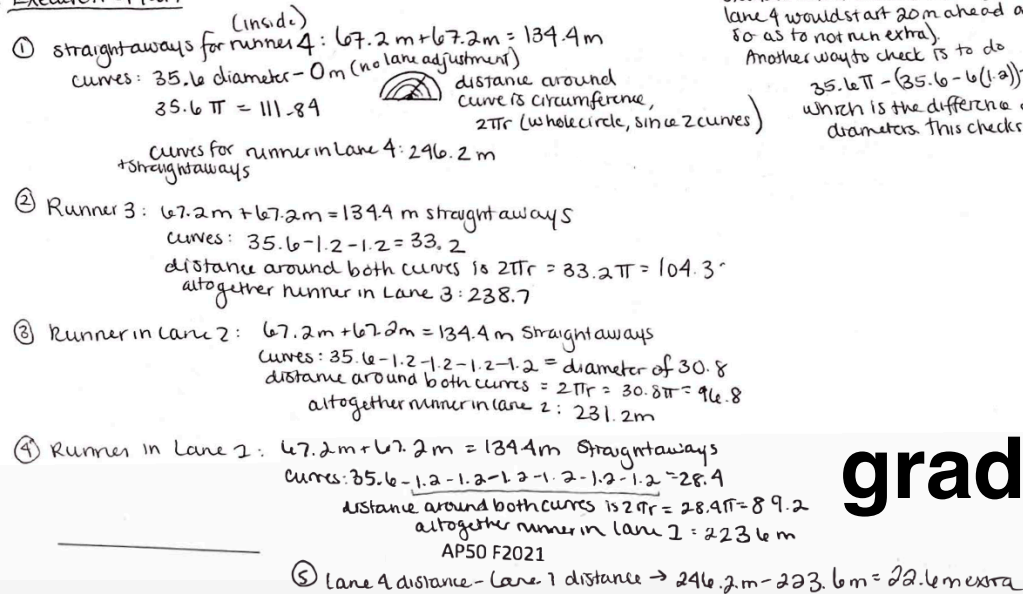 (inside)
① straightaways for runner 4: 67.2m+67.2m = 134.4m
curves: 35.6 diameter - 0m (no lane adjustment)
35.6π = 111.84
distance around
curve is circumference,
2πr (whole circle, since 2 curves)
curves for runner in Lane 4: 246.2 m
+straightaways
lane 4 would start 20m ahead
so as to not run extra).
Another way to check is to do
35.6π -(35.6-6(1.2))
which is the difference
diameters. This checks
② Runner 3: 67.2m +67.2m =134.4 m straightaways
curves: 35.6-1.2-1.2 = 33.2
distance around both curves is 2πr = 33.2π = 104.3
altogether runner in Lane 3: 238.7
③ Runner in Lane 2: 67.2m +67.2m = 134.4m straightaways
curves: 35.6-1.2-1.2-1.2-1.2 = diameter of 30.8
distance around both curves = 2πr = 30.8π = 96.8
altogether runner in lane 2: 231.2m
④ Runner in Lane 1: 67.2m+67.2m = 134.4m straightaways
curves: 35.6-1.2-1.2-1.2-1.2-1.2-1.2 = 28.4
distance around both curves is 2πr = 28.4π = 89.2
altogether runner in lane 1 = 223.6m
grad
AP50 F2021
⑤ Lane 4 distance - Lane 1 distance → 246.2m-223.6m = 22.6m extra